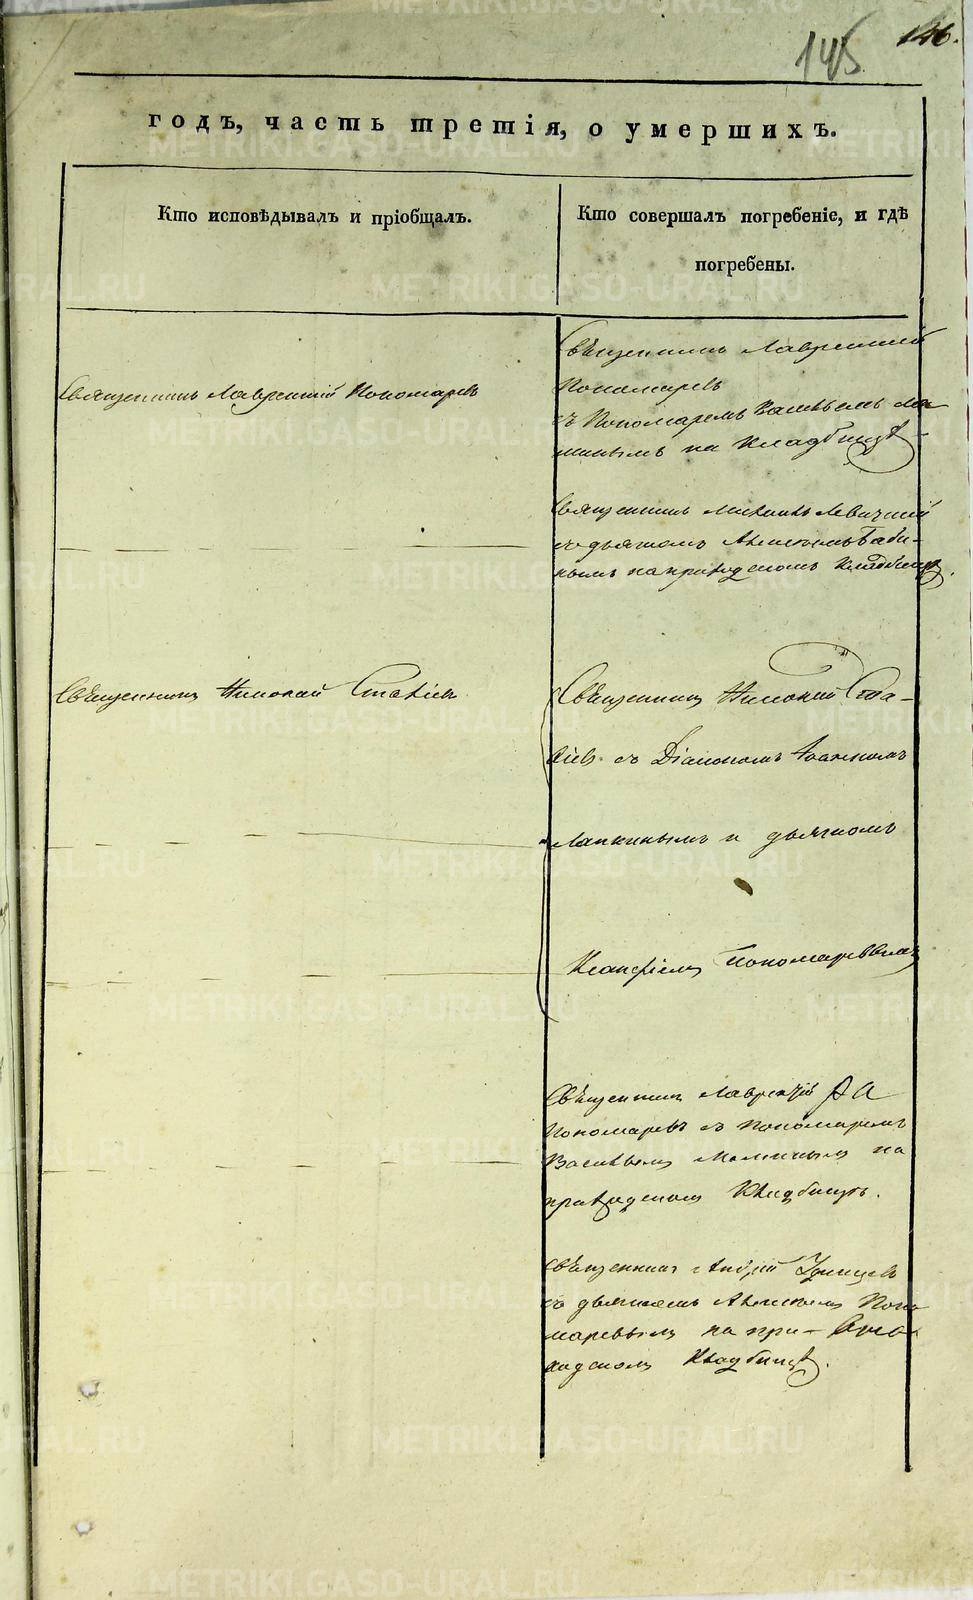 145 146.
годъ, часть третія, о умершихъ.
Кто исповѣдывалъ и пріобщалъ.
Кто совершалъ погребеніе, и гдѣ
погребены.
Священникъ Лаврентій Пономаревъ
Священникъ Лаврентій
Пономаревъ
съ Пономаремъ Васильемъ
на Кладбищѣ
Священникъ Левицкій
съ дьячкомъ Алексѣемъ Баби-
нымъ на приходскомъ Кладбищѣ.
Священникъ Николай
Священникъ Николай
съ Діакономъ Іоанномъ
Лапинымъ и дьячкомъ
Пономаревымъ
Священникъ Лаврентій
Пономаревъ съ пономаремъ
Васильемъ на
приходскомъ Кладбищѣ.
Священникъ Андрей Удинцевъ
съ дьячкомъ Алексѣемъ Поно-
маревымъ на при-
ходскомъ Кладбищѣ.
METRIKI.GASO-URAL.RU